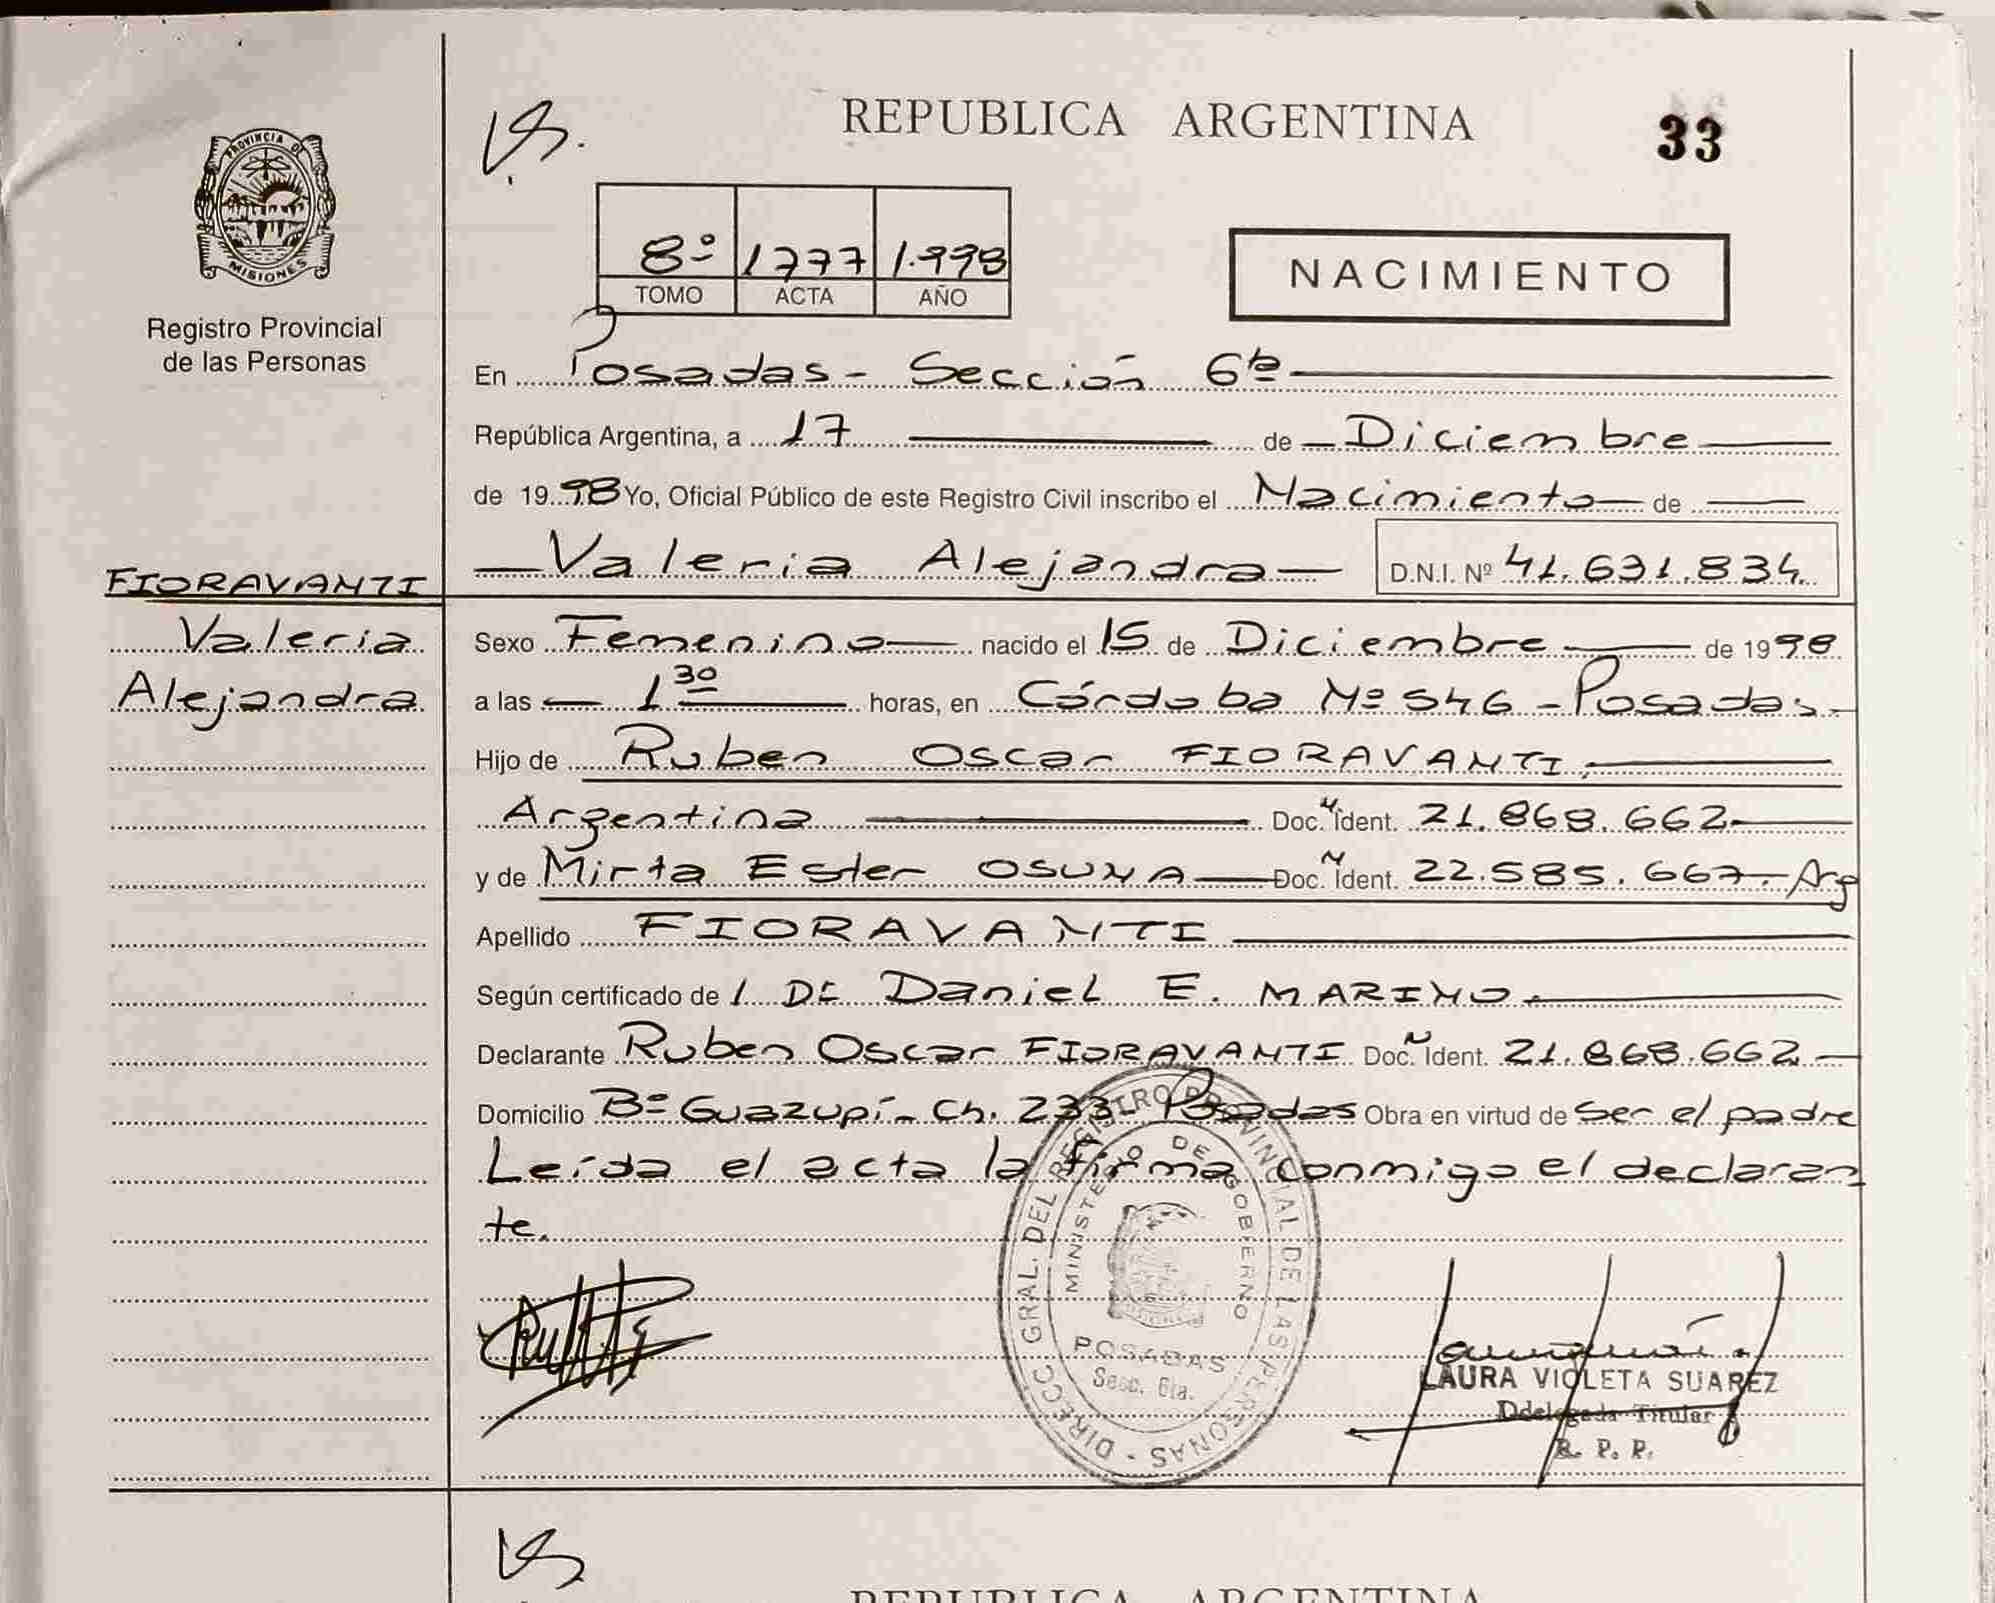 REPUBLICA ARGENTINA
33
PROVINCIA DE
MISIONES
Registro Provincial
de las Personas
8º 1777 1.998
TOMO ACTA AÑO
NACIMIENTO
En Posadas - Sección 6ta
República Argentina, a 17 de Diciembre
de 1998 Yo, Oficial Público de este Registro Civil inscribo el Nacimiento de
Valeria Alejandra D.N.I. Nº 41.631.834
FIORAVANTI
Valeria
Alejandra
Sexo Femenino nacido el 15 de Diciembre de 1998
a las 1 30 horas, en Córdoba Nº 546 - Posadas -
Hijo de Ruben Oscar FIORAVANTI.
Argentina Doc. N Ident. 21.868.662
y de Mirta Ester OSUNA Doc. N Ident. 22.585.667. Arg
Apellido FIORAVANTI
Según certificado de l Dr Daniel E. MARINO.
Declarante Ruben Oscar FIORAVANTI Doc. N Ident. 21.868.662
Domicilio Bº Guazupí - Ch. 233 - Posadas Obra en virtud de Ser el padre
Leída el acta la firma conmigo el declaran
te.
DIRECC GRAL. DEL REGISTRO PROVINCIAL DE LAS PERSONAS
MINISTERIO DE GOBIERNO
POSADAS
Secc. 6ta.
LAURA VIOLETA SUAREZ
Ddelegada Titular
R. P. P.
REPUBLICA ARGENTINA